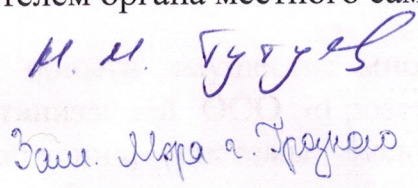 телем органа местного сам
М. М. Тутуев
Зам. Мэра г. Грозного